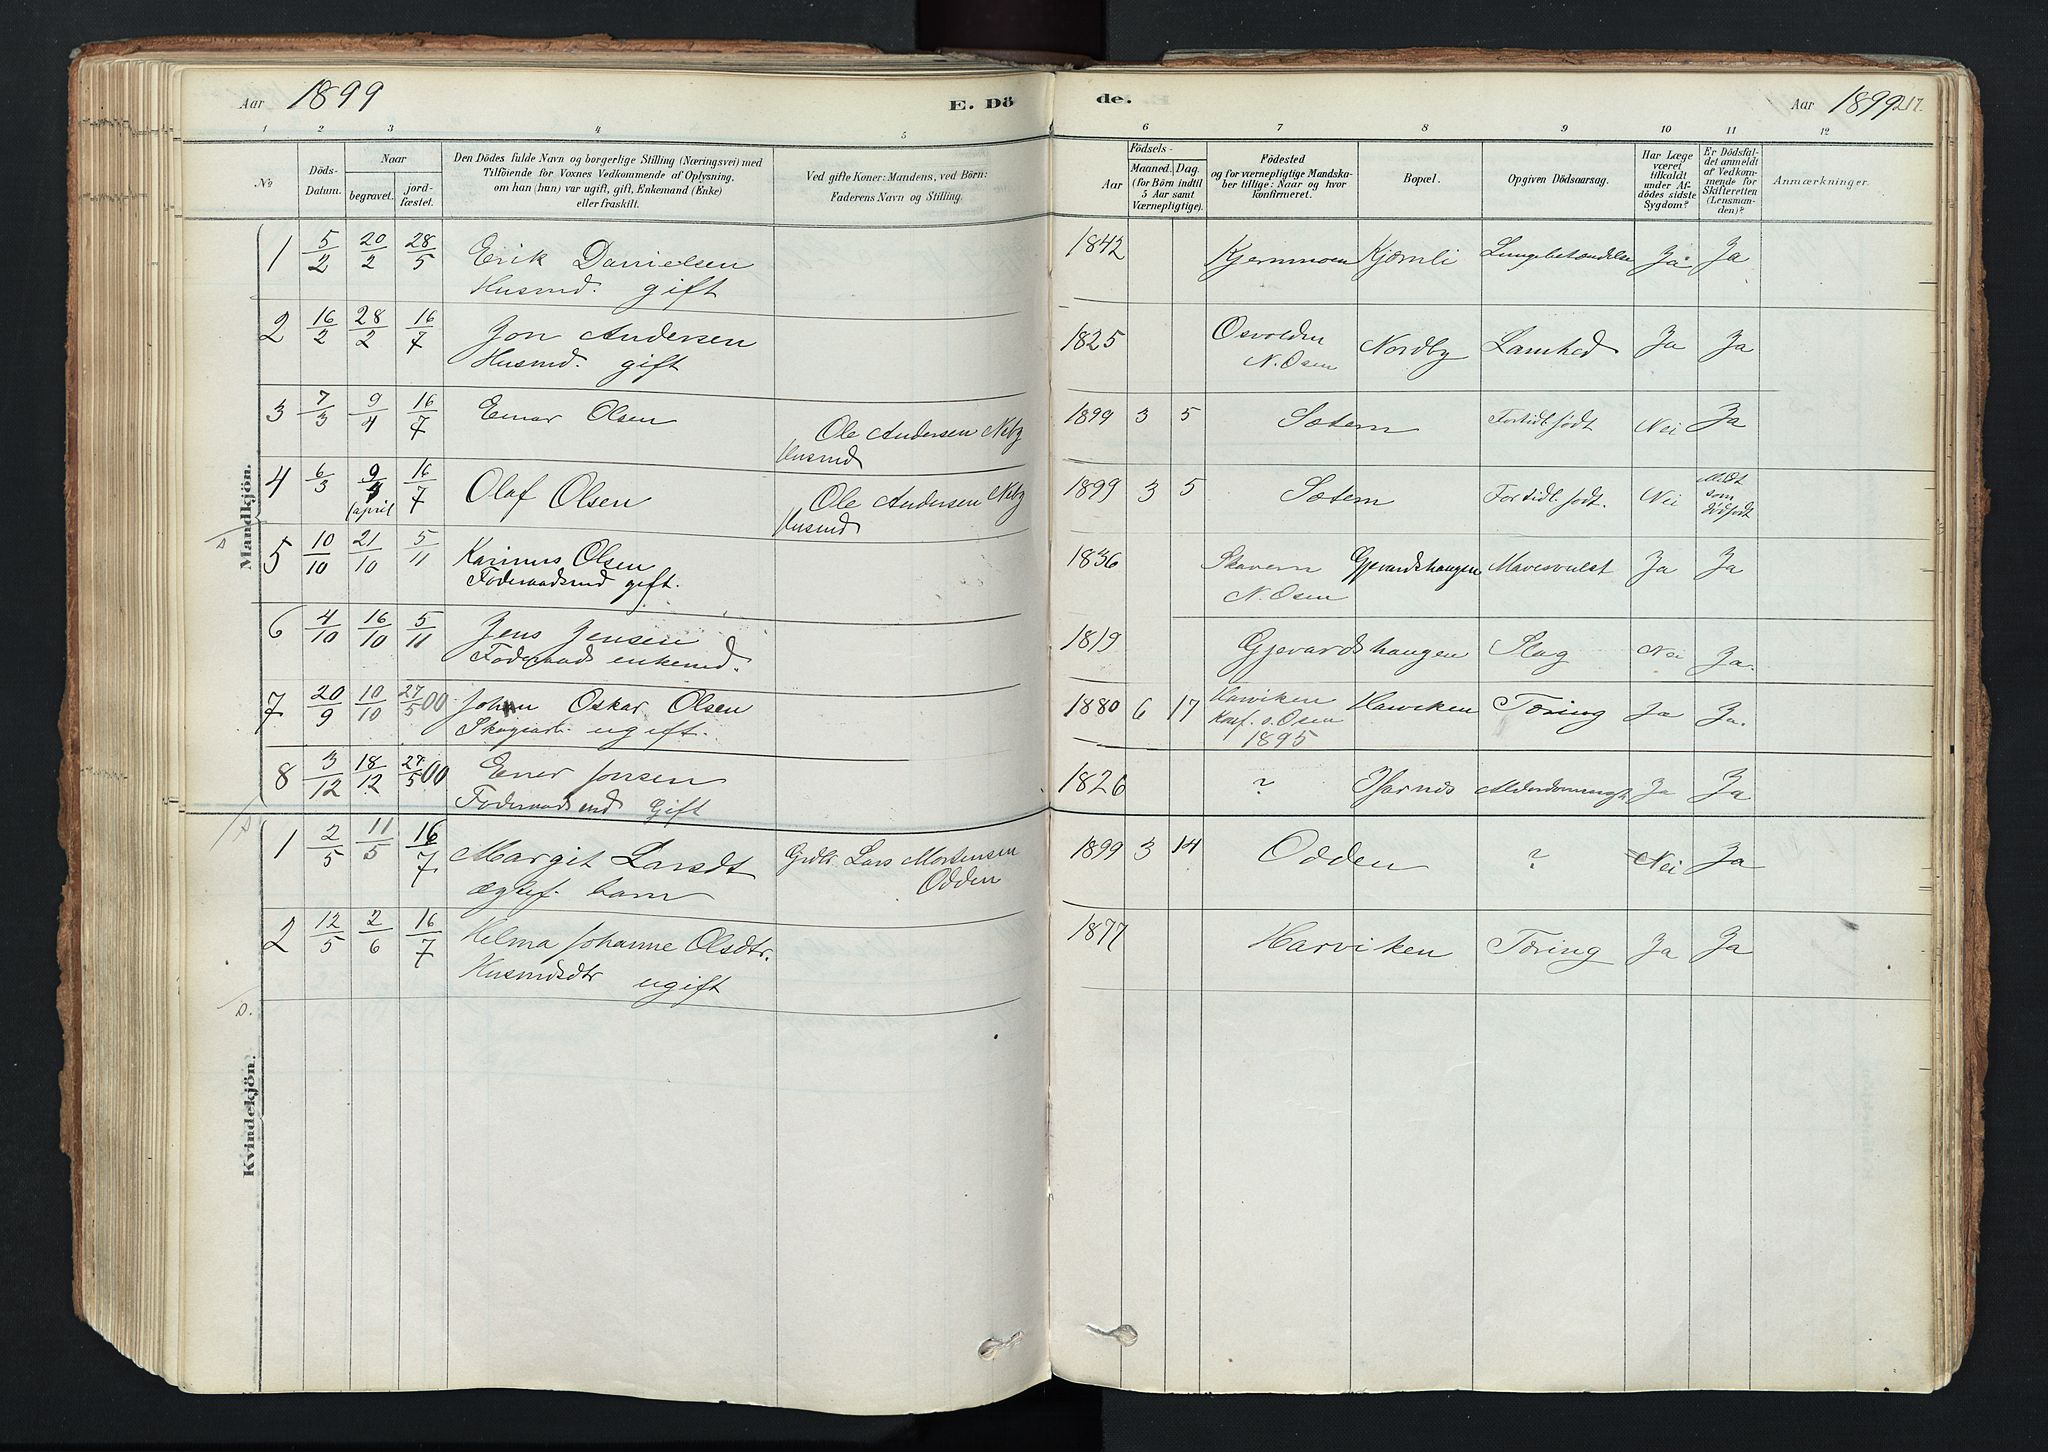 Aar 1899 E. Dö
de. Aar 1899 217.
1 2 3 4 5 6 7 8 9 10 11 12
No
Döds-Datum.
Naar
begravet.
jord-fæstet.
Den Dödes fulde Navn og borgerlige Stilling (Næringsvei) med
Tilföiende for Voxnes Vedkommende af Oplysning,
om han (hun) var ugift, gift, Enkemand (Enke)
eller fraskilt.
Ved gifte Koner: Mandens, ved Börn:
Faderens Navn og Stilling.
Födsels-
Aar
Maaned. Dag.
(for Börn indtil
5 Aar samt
Værnepligtige).
Födested
og for værnepligtige Mandska-
ber tillige: Naar og hvor
konfirmeret.
Bopæl.
Opgiven Dödsaarsag.
Har Læge
været
tilkaldt
under Af-
dödes sidste
Sygdom?
Er Dödsfal-
det anmeldt
af Vedkom-
mende for
Skifteretten
(Lensman-
den)?
Anmærkninger.
Mandkjön.
1 5/2 20/2 28/5 Erik Danielsen 1842 Kjernmoen Kjørnli Lungebetændelse Ja Ja
Husmd. gift
2 16/2 28/2 16/7 Jon Andersen 1825 Osvolden Nordby Lamhed Ja Ja
Husmd. gift N. Osen
3 7/3 9/4 16/7 Einar Olsen Ole Andersen Neby 1899 3 5 Sætem Fortidl. født Nei Ja
Husmd
4 6/3 9/4 16/7 Olaf Olsen Ole Andersen Neby 1899 3 5 Sætem Fortidl. født. Nei Mldt
april Husmd som
dødfødt
5 10/10 21/10 5/11 Karinus Olsen 1836 Skavern Gjevardshaugen Mavesvulst Ja Ja
Föderaadsmd gift. N. Osen
6 4/10 16/10 5/11 Jens Jensen 1819 Gjevardshaugen Slag Nei Ja.
Föderaads enkemd.
7 20/9 10/10 27/5 00 Johan Oskar Olsen 1880 6 17 Harviken Harviken Tæring Ja Ja.
Skogsarb. ugift. Konf. s. Osen
1895
8 3/12 18/12 27/5 00 Ener Jonsen 1826 ? Alderdomssvagh. Ja Ja
Föderaadsmd Gift
Kvindekjön.
1 2/5 11/5 16/7 Margit Larsdt Grdbr. Lars Mortensen 1899 3 14 Odden ? Nei Ja
ægtef. barn Odden
2 12/5 2/6 16/7 Helma Johanne Olsdtr. 1877 Harviken Tæring Ja Ja
Husmdsdtr ugift